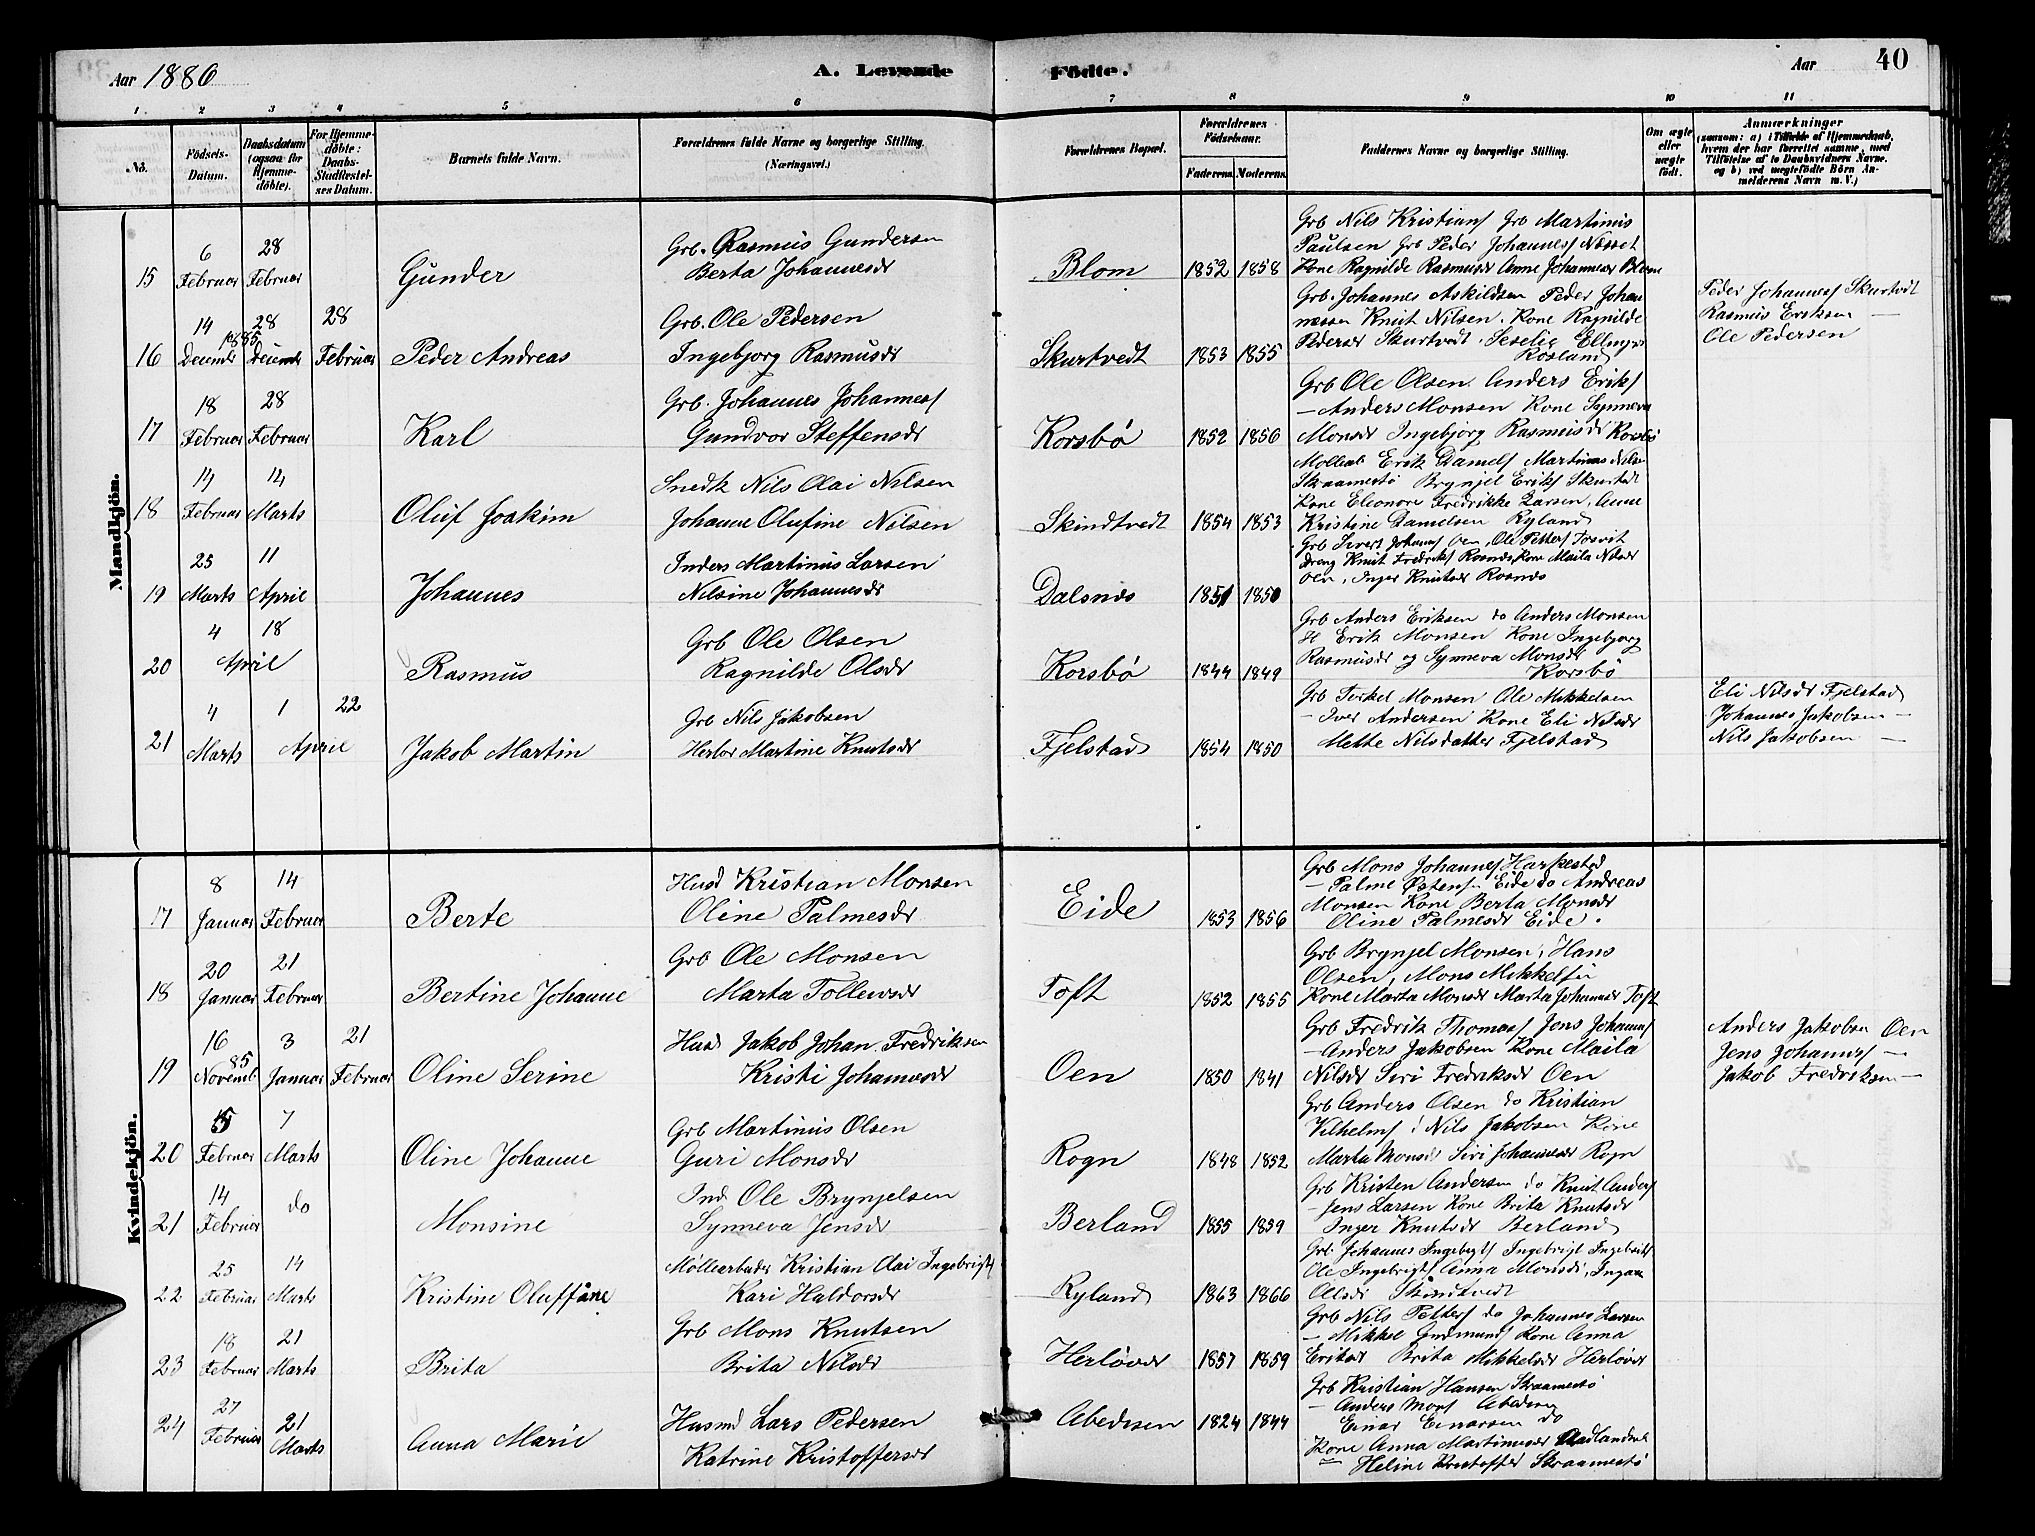 Aar 1886
A. Levende Födte.
Aar
40
1 2 3 4 5 6 7 8 9 10 11
No.
Födsels-Datum.
Daabsdatum (ogsaa för Hjemme-döbte).
For Hjemme-döbte: Daabs-Stadfestel-ses Datum.
Barnets fulde Navn.
Forældrenes fulde Navne og borgerlige Stilling. (Næringsvei.)
Forældrenes Bopæl.
Forældrenes Födselsaar.
Faderens. Moderens.
Faddernes Navne og borgerlige Stilling.
Om ægte eller uægte födt.
Anmærkninger
(saasom: a) i Tilfælde af Hjemmedaab, hvem der har forrettet samme, med Tilföielse af to Daabsvidners Navne. og b) ved uægtefödte Börn An-melderens Navn m. V.)
Mandkjön.
15 6 Februar 28 Februar Gunder
Grb. Rasmus Gundersen
Berta Johannesdr
Blom 1852 1858
Grb Nils Kristians Grb Martinus
Paulsen Grb Peder Johannes Nesset
Kone Ragnilde Rasmusdr Anne Johannesdr Blom
16 14 Decembr 1885 28 Decembr 28 Februar Peder Andreas
Grb. Ole Pedersen
Ingebjorg Rasmusdr
Skurtvedt 1853 1855
Grb. Johannes Askildsen Peder Johan
nessen Knut Nilsen. Kone Ragnilde
Pedersdr Skurtvedt. Seselie Ellings
Rosland
Peder Johannes Skurtvdt
Rasmus Eriksen —
Ole Pedersen
17 18 Februar 28 Februar Karl
Grb. Johannes Johannes
Gundvor Steffensdr
Korsbö 1852 1856
Grb Ole Olsen. Anders Eriks
— Anders Monsen Kone Synneva
Monsdr Ingebjorg Rasmusdr Korsbö
18 14 Februar 14 Marts Oluf Joakim
Snedk Nils Olai Nilsen
Johanne Olufine Nilsen
Skindtvedt 1854 1853
Mollearb Erik Daniels Martinus Nilse
Straamestö Brynjel Eriks Skurtvdt
Kone Eleonore Fredrikke Larsen, Anne
Kristine Danielsen Ryland
19 25 Marts 11 April Johannes
Inders Martinus Larsen
Nilsine Johannesdr
Dalsnes 1851 1850
Grb Sivert Johanns Oen, Ole Petters Josvit
Dreng Knut Fredriks Rosnes, Kone Maila Nilsdr
Oen, Inger Knutsdr Rosnes
20 4 18 April Rasmus
Grb Ole Olsen
Ragnilde Olsdr
Korsbö 1844 1849
Grb Anders Eriksen do Anders Monsen
H Erik Monsen Kone Ingebjorg
Rasmusdr og Synneva Monsdr
Korsbö
21 4 Marts 1 April 22 Jakob Martin
Grb Nils Jakobsen
Herbor Martine Knutsdr
Fjelstad 1854 1850
Grb Torkel Monsen Ole Mikkelsen
— Iver Andersen Kone Eli Nilsdr
Mette Nilsdatter Fjelstad
Eli Nilsdr Fjelstad
Johannes Jakobsen —
Nils Jakobsen —
Kvindekjön.
17 8 Januar 14 Februar Berte
Husd Kristian Monsen
Oline Palmesdr
Eide 1853 1856
Grb Mons Johannes Harkestad
— Palme Østens Eide do Andreas
Monsen Kone Berta Monsdr
Oline Palmesdr Eide.
18 20 Januar 21 Februar Bertine Johanne
Grb Ole Monsen
Marta Tollevsdr
Toft 1852 1855
Grb Brynjel Monsen, Hans
Olsen, Mons Mikkelsn
Kone Marta Monsdr Marta Johannsdr Toft
19 16 Novemb 85 3 Januar 21 Februar Oline Serine
Husd Jakob Johan. Fredriksen
Kristi Johannesdr
Oen 1850 1841
Grb Fredrik Thomas Jens Johanns
— Anders Jakobsen Kone Maila
Nilsdr Siri Fredriksdr Oen
Anders Jakobsn Oen
Jens Johanns —
Jakob Fredriksen —
20 5 Februar 7 Marts Oline Johanne
Grb Martinus Olsen
Guri Monsdr
Rogn 1848 1852
Grb Anders Olsen do Kristian
Vilhelms, Nils Jakobsen Kone
Marta Monsdr Siri Johannesdr Rogn
21 14 Februar do Monsine
Ind Ole Brynjelsen
Synneva Jensdr
Berland 1855 1859
Grb Kristen Andersen do Knut Anders
— Jens Larsen Kone Brita Knutsdr
Inger Knutsdr Berland
22 25 Februar 14 Marts Kristine Oluffine
Møllearbeder Kristian Olai Ingebrigts
Kari Haldorsdr
Ryland 1863 1866
Grb. Johannes Ingebrgts Ingebrigt Ingebrits
Ole Ingebrigts Anna Monsdr, Ingan
Olsdr Skindtvedt
23 18 Februar 21 Marts Brita
Grb Mons Knutsen
Brita Nilsdr
Herlöver 1857 1859
Grb Nils Petters do Johannes Larsen
— Mikkel Gudmunds Kone Anna
Eriksdr Brita Mikkelsdr Herlöver
24 27 Februar 21 Marts Anna Marie
Husmd Lars Pedersen
Katrine Kristoffersdr
Abedesen 1824 1844
Grb Kristian Hansen Straamestö
— Anders Mons Abedesen
Einar Einarsen do
Kone Anna Martinusdr Aadlandsvik
— Heline Kristoffer Straamestö